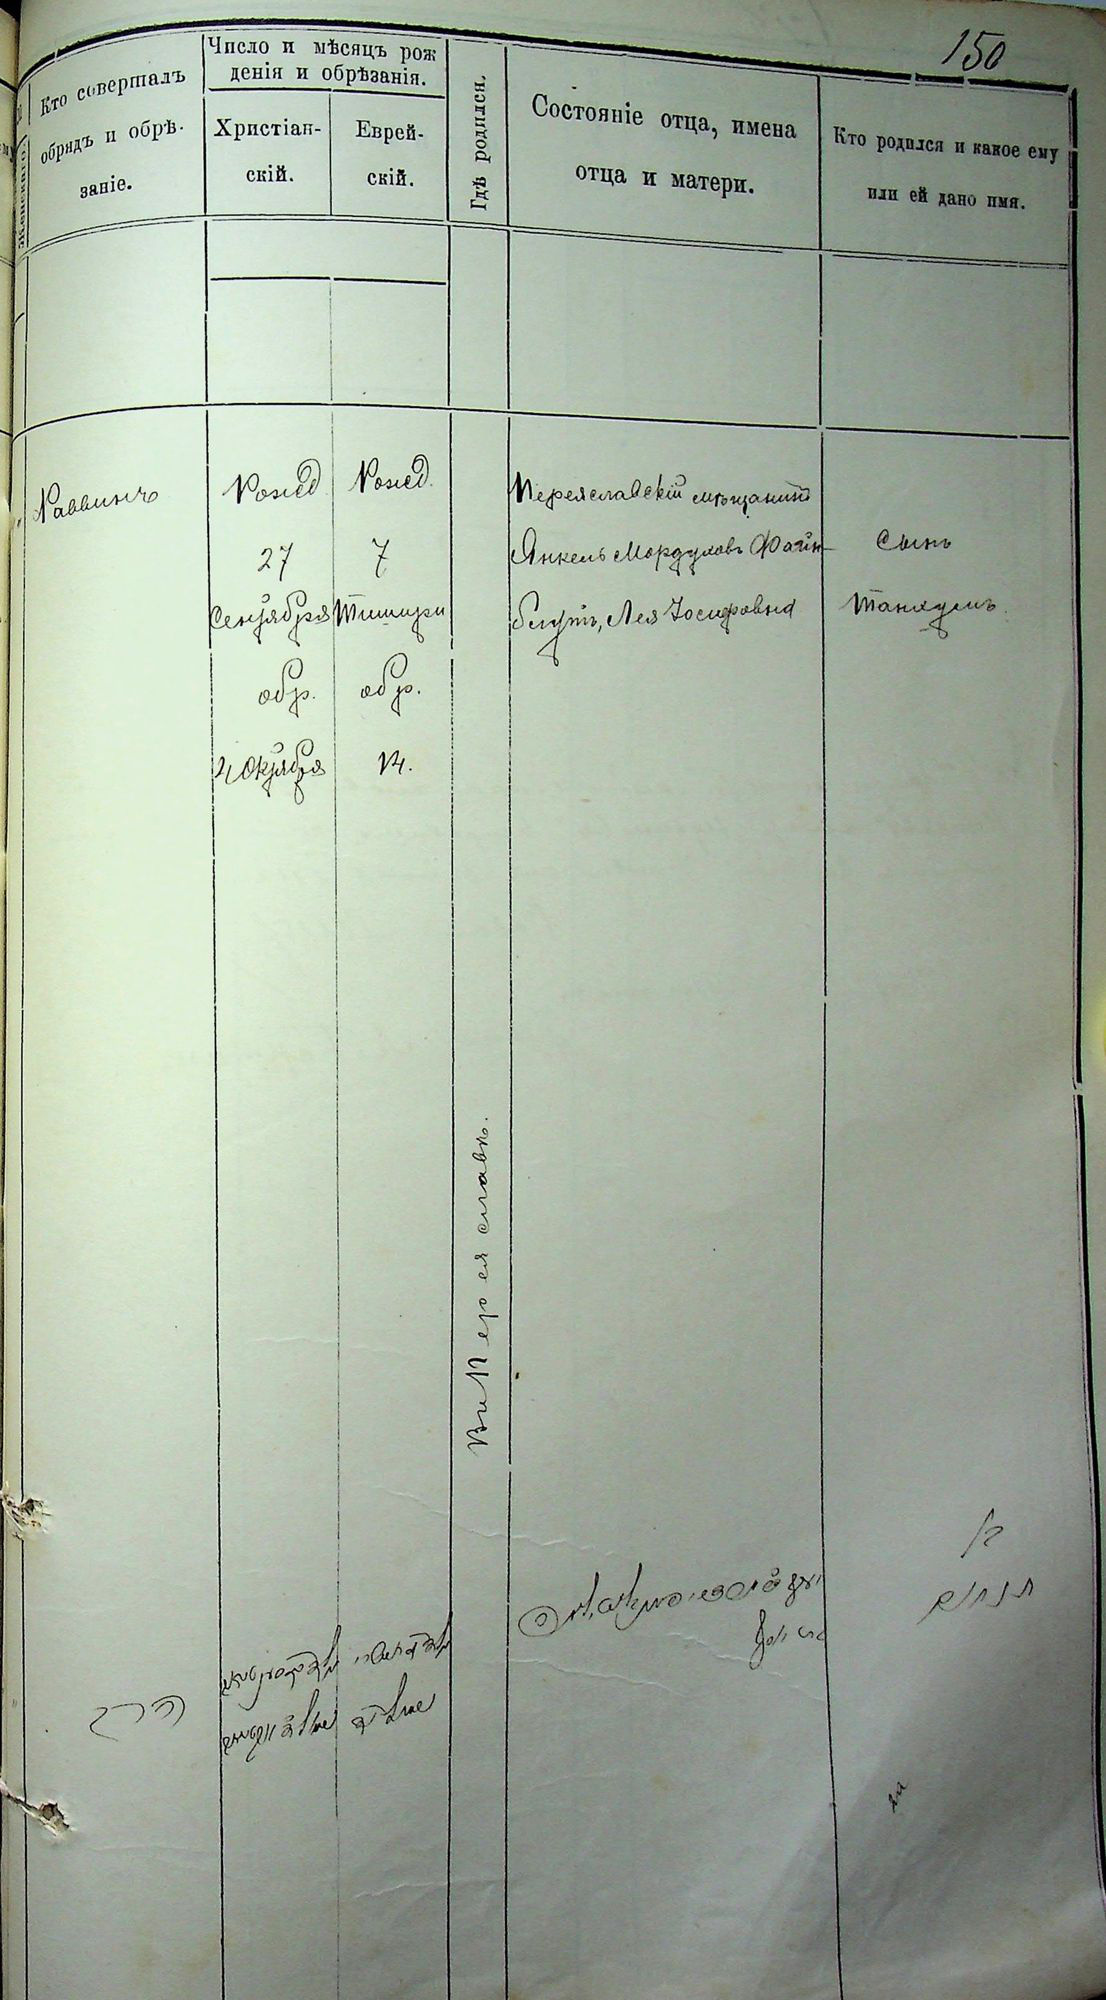 150
Кто совершалъ
обрядъ и обрѣ-
заніе.
Число и мѣсяцъ рож
денія и обрѣзанія.
Христіан-
скій.
Еврей-
скій.
Гдѣ родился.
Состояніе отца, имена
отца и матери.
Кто родился и какое ему
или ей дано имя.
Женскаго.
Раввинъ
Рожд
27
Сентября
обр.
4 Октября
Рожд.
7
Тишири
обр.
14.
Въ Переяславѣ.
Переяславскій мѣщанинъ
Янкель Мордуховъ Файн-
блутъ, Лея Іосифовна
Сынъ
Танхумъ.
הרב
בן
תנחום